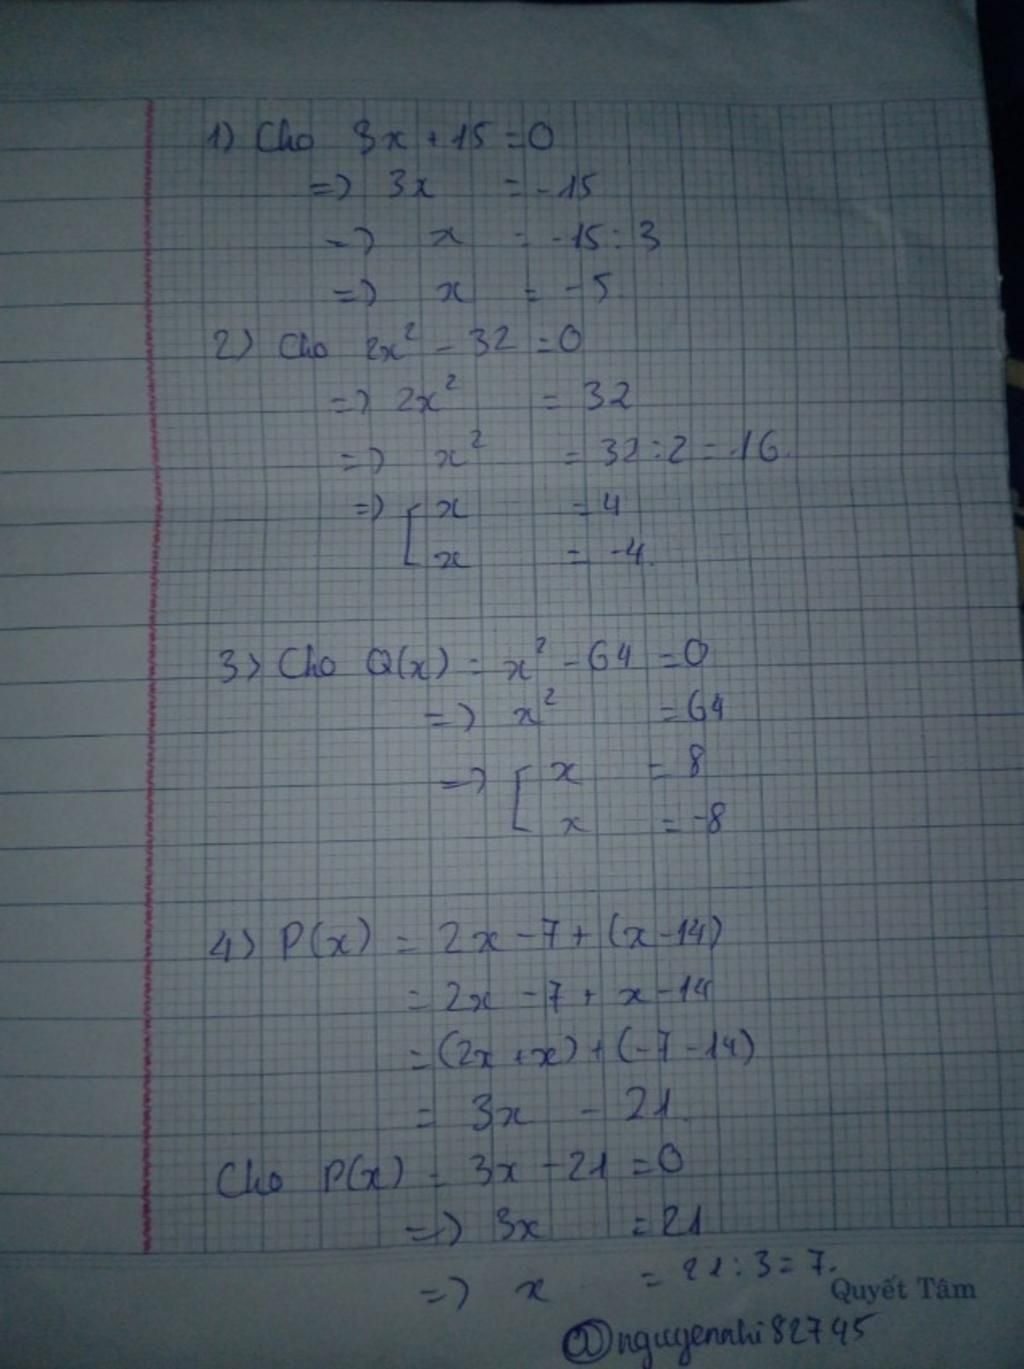 1) Cho 3x + 15 = 0
=> 3x = -15
=> x = -15 : 3
=> x = -5
2) Cho 2x² - 32 = 0
=> 2x² = 32
=> x² = 32 : 2 = 16.
=> [ x = 4
x = -4.
3) Cho Q(x) = x² - 64 = 0
=> x² = 64
=> [ x = 8
x = -8
4) P(x) = 2x - 7 + (x - 14)
= 2x - 7 + x - 14
= (2x + x) + (-7 - 14)
= 3x - 21.
Cho P(x) = 3x - 21 = 0
=> 3x = 21
=> x = 21 : 3 = 7.
Quyết Tâm
@nguyennhi82745